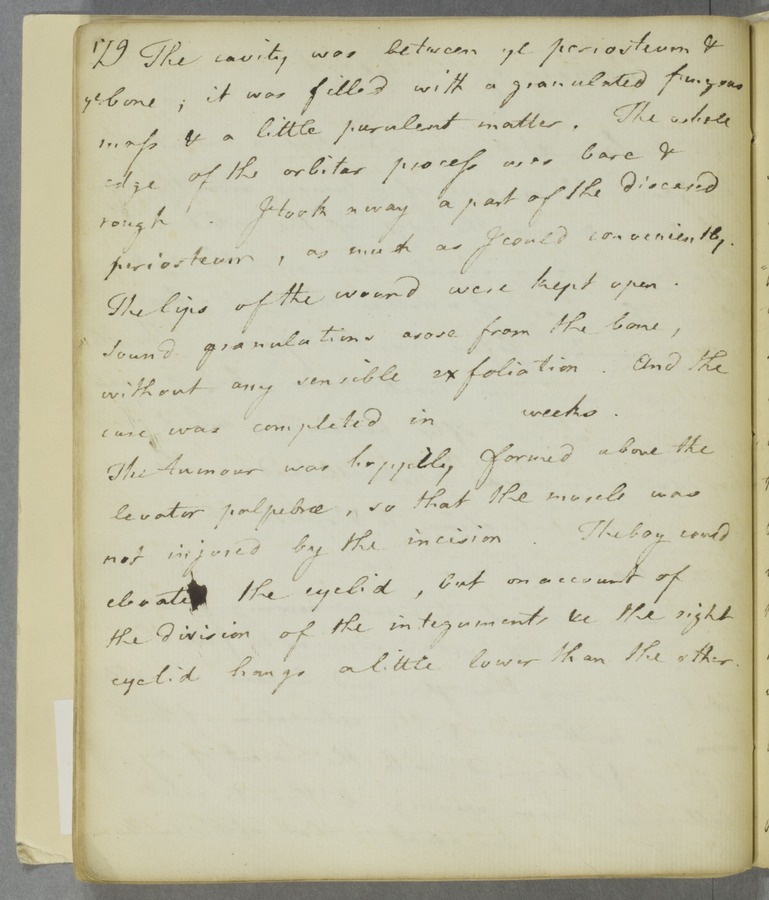 179 The cavity was between ye periosteum &
ye bone ; it was filled with a granulated fungous
mass & a little purulent matter . The whole
edge of the orbitar process was bare &
rough . I took away a part of the diseased
periosteum , as much as I could conveniently.
The lips of the wound were kept open .
Sound granulations arose from the bone ,
without any sensible exfoliation . And the
cure was completed in weeks .
The tumour was happily formed above the
levator palpebræ , so that the muscle was
not injured by the incision . The boy could
elevate the eyelid , but on account of
the division of the integuments &c the right
eyelid hangs a little lower than the other.